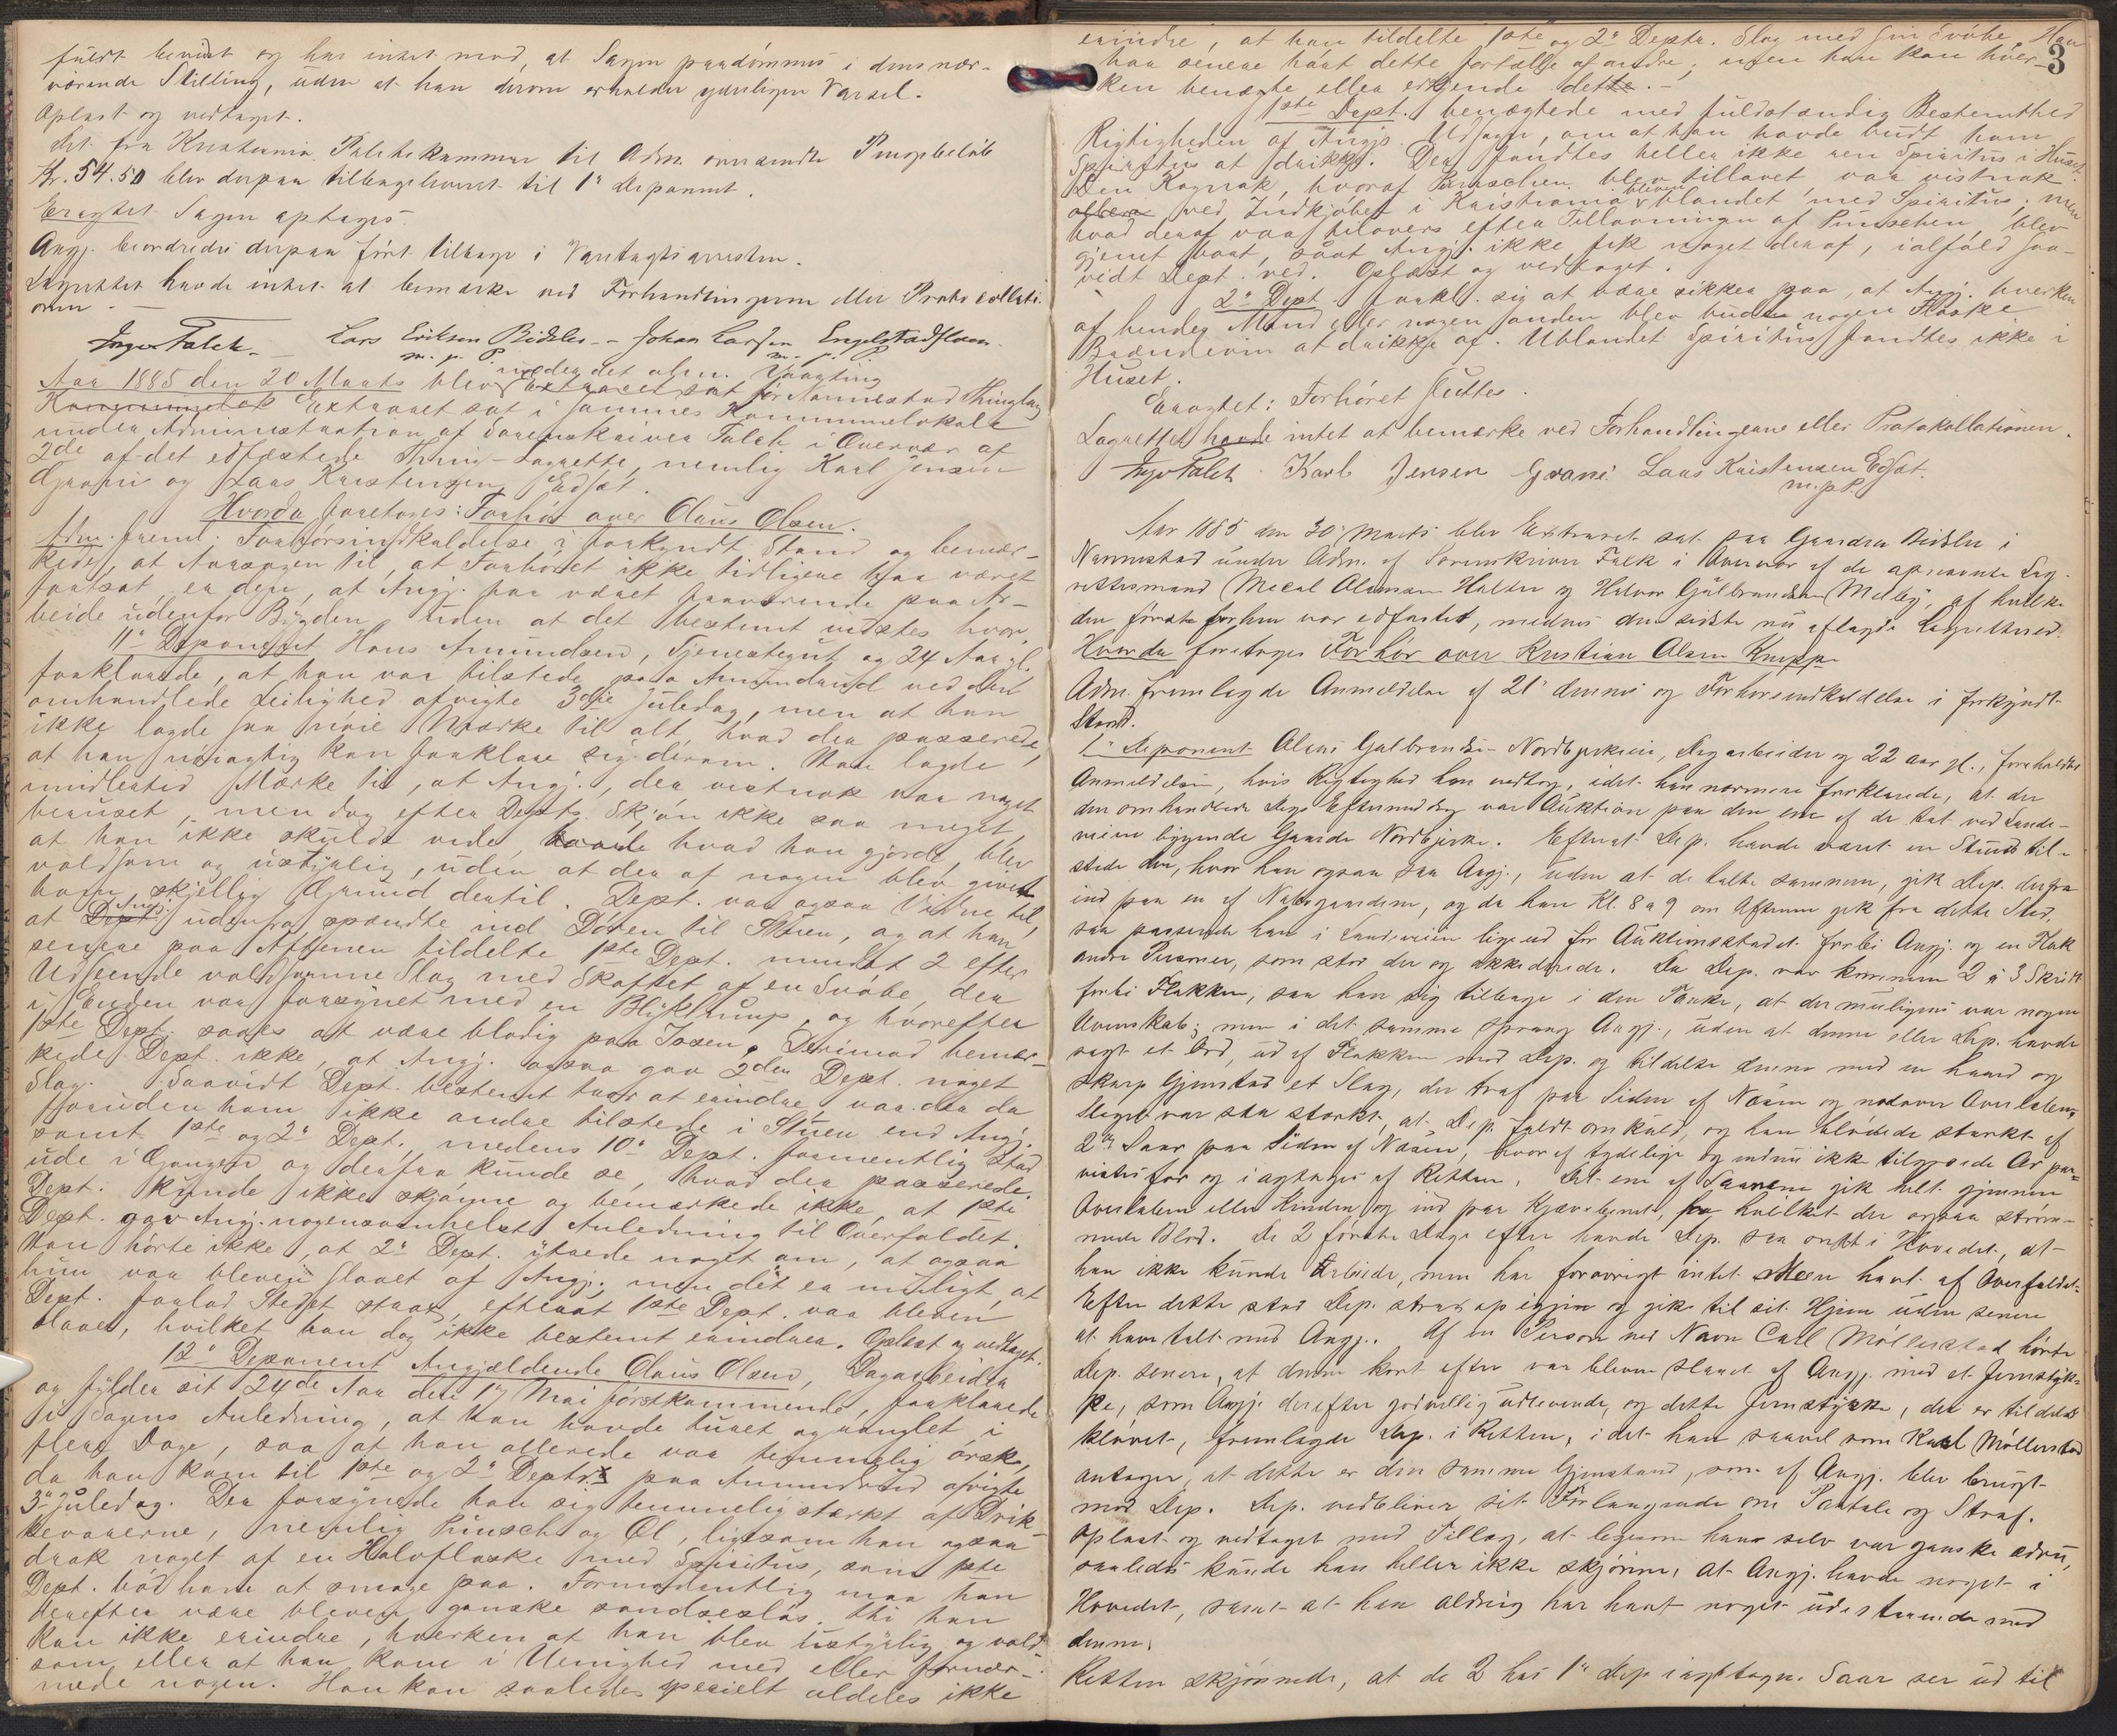 fuldt bevidst og har intet mod, at Sagen paadömmes i dens nær-
værende Stilling, uden at han derom erholder yderligere Varsel.
Oplæst og vedtaget.
Det fra Kristiania Politikammer til Adm. oversendte Pengebelöb
Kr. 54.50 blev derpaa tilbageleveret til 1ste Deponent.
Eragtet Sagen optages.
Angj. beordredes derpaa fört tilbage i Varetægtsarresten.
Lagrettet havde intet at bemærke ved Forhandlingerne eller Protokollati-
onen.
Inger Falch. Lars Eriksen Bidsler - Johan Larsen Engelstadfloen.
m. p. P. m. p. P.
Aar 1885 den 20 Marts blev under det alm. Vaarting
Extraret sat för Nannestad Thinglag
Extraret sat i sammes Kommunelokale
under Administration af Sorenskriver Falch i Overvær af
2de af det edfæstede Thing-Lagrette, nemlig Karl Jensen
Grani og Lars Kristensen Edsat.
Hvorda foretoges: Forhör over Olaus Olsen.
Adm. freml. Forhörsindkaldelse i forkyndt Stand og bemær-
kede, at Aarsagen til, at Forhöret ikke tidligere har været
fortsat, er den, at Angj. har været fraværende paa Ar-
beide udenfor Bygden uden at det bestemt vidstes hvor.
11te Deponent Hans Amundsen, Tjenestegut og 24 Aar gl.
forklarede, at han var tilstede paa Amundrud ved den
omhandlede Leilighed afvigte 3die Juledag, men at han
ikke lagde saa nöie Mærke til alt, hvad der passerede,
at han nöiagtig kan forklare sig derom. Han lagde
imidlertid Mærke til, at Angj., der vistnok var noget
beruset, men dog efter Depts. Skjön ikke saa meget,
at han ikke skulde vide, hvad han gjorde, blev
voldsom og ustyrlig, uden at der af nogen blev givet
ham skjellig Grund dertil. Dept. var ogsaa Vidne til,
at Angj. udenfra spændte ind Dören til Stuen, og at han
senere paa Aftenen tildelte 1ste Dept. mindst 2 efter
Udseende voldsomme Slag med Skaftet af en Svöbe, der
i Enden var forsynet med en Blyklump, og hvorefter
1ste Dept. saaes at være blodig paa Issen. Derimod bemær-
kede Dept. ikke, at Angj. ogsaa gav 2den Dept. noget
Slag. Saavidt Dept. bestemt tror at erindre var der da
foruden ham ikke andre tilstede i Stuen end Angj.
samt 1ste og 2den Dept., medens 10de Dept. formentlig stod
ude i Gangen og derfra kunde se, hvad der passerede.
Dept. kunde ikke skjönne og bemærkede ikke, at 1ste
Dept. gav Angj. nogensomhelst Anledning til Overfaldet.
Han hörte ikke, at 2den Dept. ytrede noget om, at ogsaa
hun var bleven slaaet af Angj., men det er muligt, at
Dept. forlod Stedet strax, efterat 1ste Dept. var bleven
slaaet, hvilket han dog ikke bestemt erindrer. Oplæst og vedtaget.
12te Deponent Angjældende Olaus Olsen, Dagarbeider
og fylder sit 24de Aar den 17 Mai förstkommende, forklarede
i Sagens Anledning, at han havde turet og ranglet i
flere Dage, saa at han allerede var temmelig örsk,
da han kom til 1ste og 2den Depts. paa Amundrud afvigte
3die Juledag. Der forsynede han sig temmelig stærkt af Drik-
kevarerne, nemlig Punsch og Öl, ligesom han ogsaa
drak noget af en Halvflaske med Spiritus, som 1ste
Dept. böd ham at smage paa. Formodentlig maa han
derefter være bleven ganske sandseslös, thi han
kan ikke erindre, hverken at han blev ustyrlig og vold-
som, eller at han kom i Uenighed med eller fornær-
mede nogen. Han kan saaledes specielt aldeles ikke
3
erindre, at han tildelte 1ste og 2den Deptr. Slag med sin Svöbe. Han
har senere hört dette fortælle af andre, men han kan hver-
ken benægte eller erkjende dette.
1ste Dept. benægtede med fuldstændig Bestemthed
Rigtigheden af Angjs. Udsagn, om at han havde budt ham
Spiritus at drikke. Der fandtes heller ikke ren Spiritus i Huset.
Den Kognak, hvoraf Punschen blev tillavet var vistnok
ved Indkjöbet i Kristiania bleven blandet med Spiritus, men
hvad deraf var tilovers efter Tillavningen af Punschen, blev
gjemt bort, saat Angj. ikke fik noget deraf, ialfald saa-
vidt Dept. ved. Oplæst og vedtaget.
2den Dept. forkl. sig at være sikker paa, at Angj. hverken
af hendes Mand eller nogen anden blev buden nogen Flaske
Brændevin at drikke af. Ublandet Spiritus fandtes ikke i
Huset.
Eragtet: Forhöret sluttes.
Lagrettet havde intet at bemærke ved Forhandlingerne eller Protokollationen.
Inger Falch. Karl Jensen Grani. Lars Kristensen Edsat.
m. p. P.
Aar 1885 den 30 Marts blev Extraret sat paa Gaarden Bidsler i
Nannestad under Adm. af Sorenskriver Falch i Overvær af de opnævnte Lag-
rettesmænd Micael Olsen Holter og Halvor Gulbrandsen Melby, af hvilke
den förste forhen var edfæstet, medens den sidste nu aflagde Lagrettesed.
Hvorda foretages Forhör over Kristian Olsen Knapp
Adm. fremlagde Anmeldelse af 21 dennes og Forhörsindkaldelse i forkyndt
Stand.
1ste Deponent Olaus Gulbrandsen Nordbyeie, Dagarbeider og 22 aar gl., foreholdtes
Anmeldelsen, hvis Rigtighed han vedtog, idet han nærmere forklarede, at der
den omhandlede Dags Eftermiddag var Auktion paa den ene af de tæt ved Lande-
veien liggende Gaarde Nordbyerke. Efterat Dep. havde været en Stund til-
stede der, hvor han ogsaa saa Angj., uden at de talte sammen, gik Dep. derfra
ind paa en af Nabogaardene, og da han Kl. 8 a 9 om Aftenen gik fra dette Sted,
saa passerede han i Landeveien ligeud for Auktionsstedet forbi Angj. og en Flok
andre Personer, som stod der og akkederede. Da Dep. var kommen 2 à 3 Skridt
forbi Flokken, saa han sig tilbage i den Tanke, at der muligens var nogen
Uvenskab; men i det samme sprang Angj., uden at denne eller Dep. havde
sagt et Ord, ud af Flokken mod Dep. og tildelte denne med en haard og
skarp Gjenstand et Slag, der traf paa Siden af Næsen og nedover Overlæben.
Slaget var saa stærkt, at Dep. faldt omkuld, og han blödede stærkt af
2de Saar paa Siden af Næsen, hvoraf tydelige og endnu ikke tilgroede Ar paa-
vistes for og iagttoges af Retten. Det ene af Saarene gik helt gjennem
Overlæben eller Kinden og ind paa Kjævebenet, fra hvilket der ogsaa ström-
mede Blod. De 2 förste Dage efter havde Dep. saa ondt i Hovedet, at
han ikke kunde arbeide, men har forövrigt intet Meen havt af Overfaldet.
Efter dette stod Dep. strax op igjen og gik til sit Hjem uden senere
at have talt med Angj. Af en Person ved Navn Carl Möllerstad hörte
Dep. senere, at denne kort efter var bleven slaaet af Angj. med et Jernstyk-
ke, som Angj. derefter godvillig udleverede, og dette Jernstykke, der er tildels
klövet, fremlagde Dep. i Retten, idet han saavel som Karl Möllerstad
antager, at dette er den samme Gjenstand, som af Angj. blev brugt
mod Dep. Dep. vedbliver sit Forlangende om Paatale og Straf.
Oplæst og vedtaget med Tillæg, at ligesom han selv var ganske ædru,
saaledes kunde han heller ikke skjönne, at Angj. havde noget i
Hovedet, samt at han aldrig har havt noget udestaaende med
denne.
Retten skjönnede, at de 2 hos 1ste Dep. iagttagne Saar ser ud til